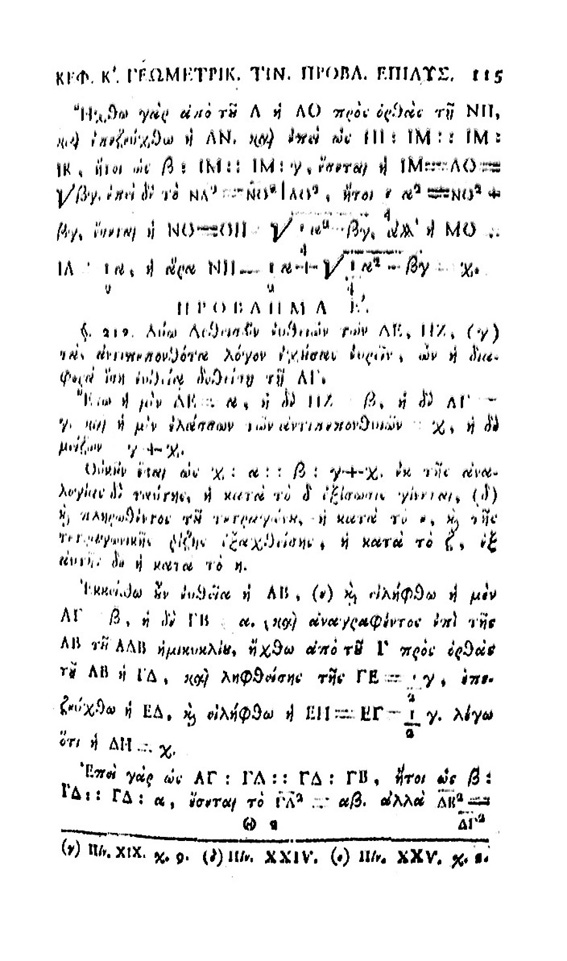 ΚΕΦ. Κ'. ΓΕΩΜΕΤΡΙΚ. ΤΙΝ. ΠΡΟΒΛ. ΕΠΙΛΥΣ. 115
Ἤχθω γὰρ ἀπὸ τῦ Λ ἡ ΛΟ πρὸς ὀρθὰς τῇ ΝΠ,
καὶ ἐπεζεύχθω ἡ ΛΝ. καὶ ἐπεὶ ὡς ΠΙ : ΙΜ :: ΙΜ :
ΙΚ, ἤτοι ὡς β : ΙΜ :: ΙΜ : γ, ἔσεται ἡ ΙΜ = ΛΟ =
√βγ. ἐπεὶ δὲ τὸ ΝΛ² = ΝΟ² + ΛΟ², ἤτοι ¼ α² = ΝΟ² +
βγ, ἔσεται ἡ ΝΟ = ΟΠ √ ¼ α² - βγ, ἀλλ' ἡ ΜΟ =
ΙΛ = ½ α, ἡ ἄρα ΝΠ = ½ α + √ ¼ α² - βγ = χ.
ΠΡΟΒΛΗΜΑ Ε'.
§. 212. Δύω δοθεισῶν εὐθειῶν τῶν ΔΕ, ΗΖ, (γ)
τὰς ἀντιπεπονθότα λόγον ἐχούσας εὑρεῖν, ὧν ἡ δια-
φορὰ ἴση εὐθείᾳ δοθείσῃ τῇ ΑΓ.
Ἔστω ἡ μὲν ΔΕ = α, ἡ δὲ ΗΖ = β, ἡ δὲ ΑΓ =
γ. καὶ ἡ μὲν ἐλάσσων τῶν ἀντιπεπονθυιῶν = χ, ἡ δὲ
μείζων = γ + χ.
Οὐκοῦν ἔσται ὡς χ : α :: β : γ + χ. ἐκ τῆς ἀνα-
λογίας δὲ ταύτης, ἡ κατὰ τὸ δ ἐξίσωσις γίνεται, (δ)
καὶ πληρωθέντος τῦ τετραγώνυ, ἡ κατὰ τὸ ε, καὶ τῆς
τετραγωνικῆς ῥίζης ἐξαχθείσης, ἡ κατὰ τὸ ζ, ἐξ
αὐτῆς δὲ ἡ κατὰ τὸ η.
Ἐκκείσθω ὖν εὐθεῖα ἡ ΑΒ, (ε) καὶ εἰλήφθω ἡ μὲν
ΑΓ = β, ἡ δὲ ΓΒ = α. καὶ ἀναγραφέντος ἐπὶ τῆς
ΑΒ τῦ ΑΔΒ ἡμικυκλίυ, ἤχθω ἀπὸ τῦ Γ πρὸς ὀρθὰς
τῇ ΑΒ ἡ ΓΔ, καὶ ληφθείσης τῆς ΓΕ = ½ γ, ἐπε-
ζεύχθω ἡ ΕΔ, καὶ εἰλήφθω ἡ ΕΗ = ΕΓ = ½ γ. λέγω
ὅτι ἡ ΔΗ = χ.
Ἐπεὶ γὰρ ὡς ΑΓ : ΓΔ :: ΓΔ : ΓΒ, ἤτοι ὡς β :
ΓΔ :: ΓΔ : α, ἔσεται τὸ ΓΔ² = αβ. ἀλλὰ ΔΕ² =
Θ 2 ΔΓ²
(γ) Πίν. XIX. χ. 9. (δ) Πίν. XXIV. (ε) Πίν. XXV. χ. 1.